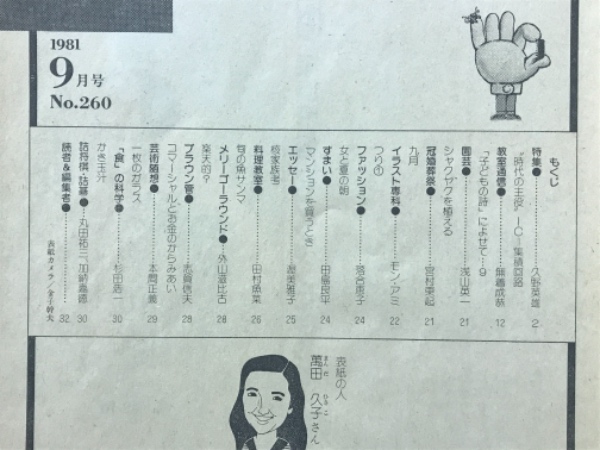 1981
9月号
No.260
もくじ
特集●………久野英雄 2
"時代の主役"IC=集積回路
教室通信●………無着成恭 12
「子どもの詩」によせて…9
園芸●………浅山英一 21
シャクヤクを植える
冠婚葬祭●………宮村季起 21
九月
イラスト専科●………モン・アミ 22
つり①
ファッション●………落合恵子 24
女と夏の朝
すまい●………田島良平 24
マンションを買うとき
エッセー●………渥美雅子 25
核家族考
料理教室●………田村魚菜 26
旬の魚サンマ
メリーゴーラウンド●………外山滋比古 28
楽天的?
ブラウン管●………志賀信夫 28
コマーシャルとお金のからみあい
芸術随想●………本間正義 29
一枚のガラス
「食」の科学●………杉田浩一 30
かき玉汁
詰将棋・詰碁●………丸田祐三、加納嘉徳 30
読者&編集者●………32
表紙カメラ/金子幹夫
表紙の人
萬田 久子さん
まんだ ひさこ